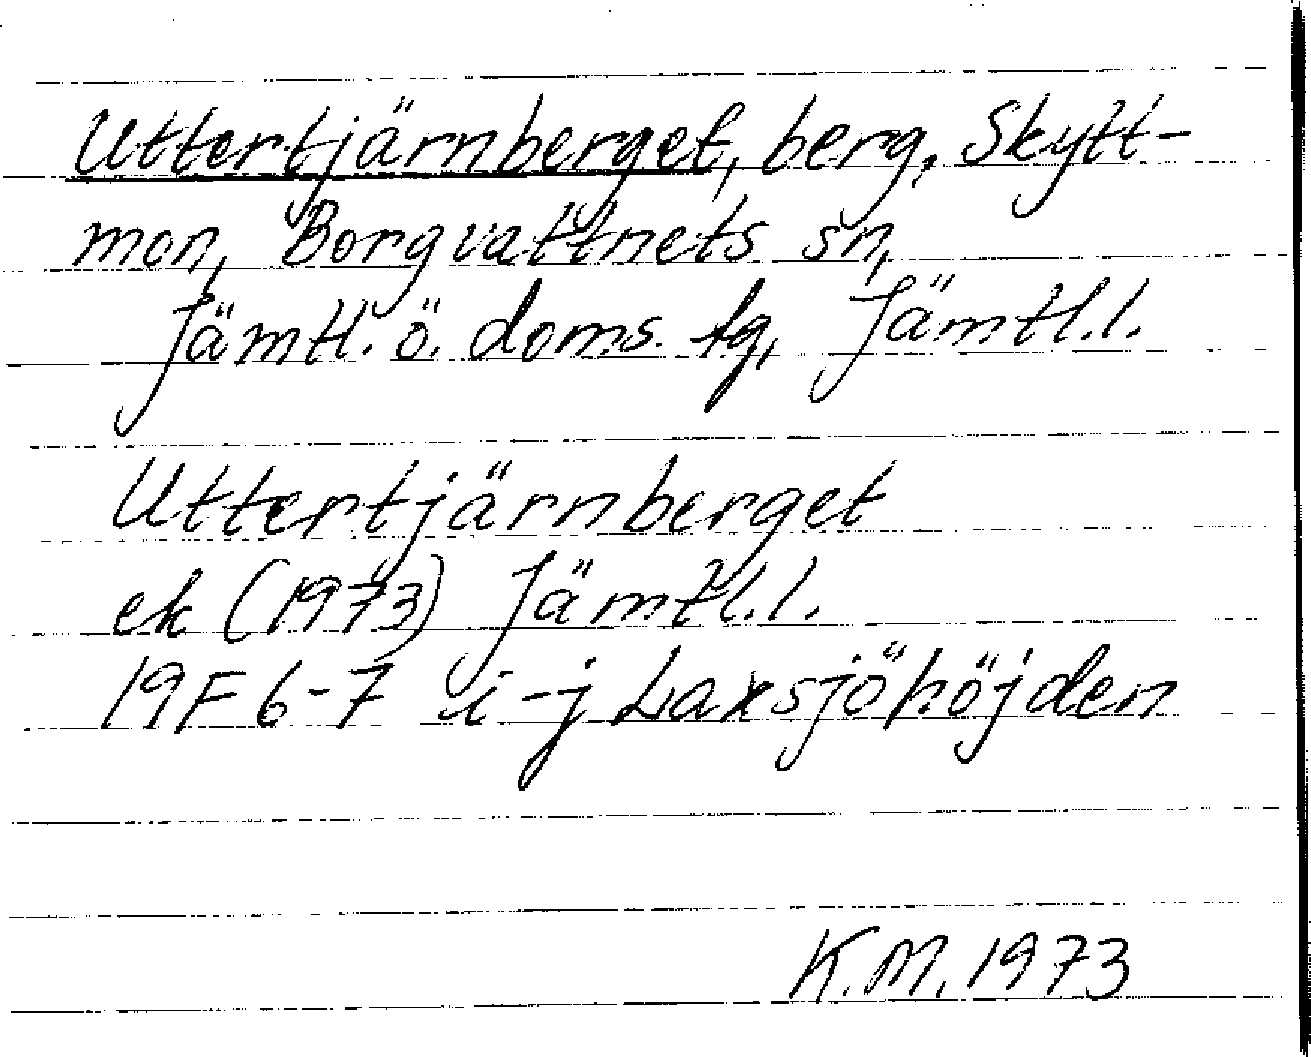 Uttertjärnberget, berg, Skytt-
mon, Borgvattnets sn,
Jämtl. ö. doms. tg, Jämtl.l.
Uttertjärnberget
ek (1973) Jämtl.l.
19F 6-7 i-j Laxsjöhöjden
K.M. 1973